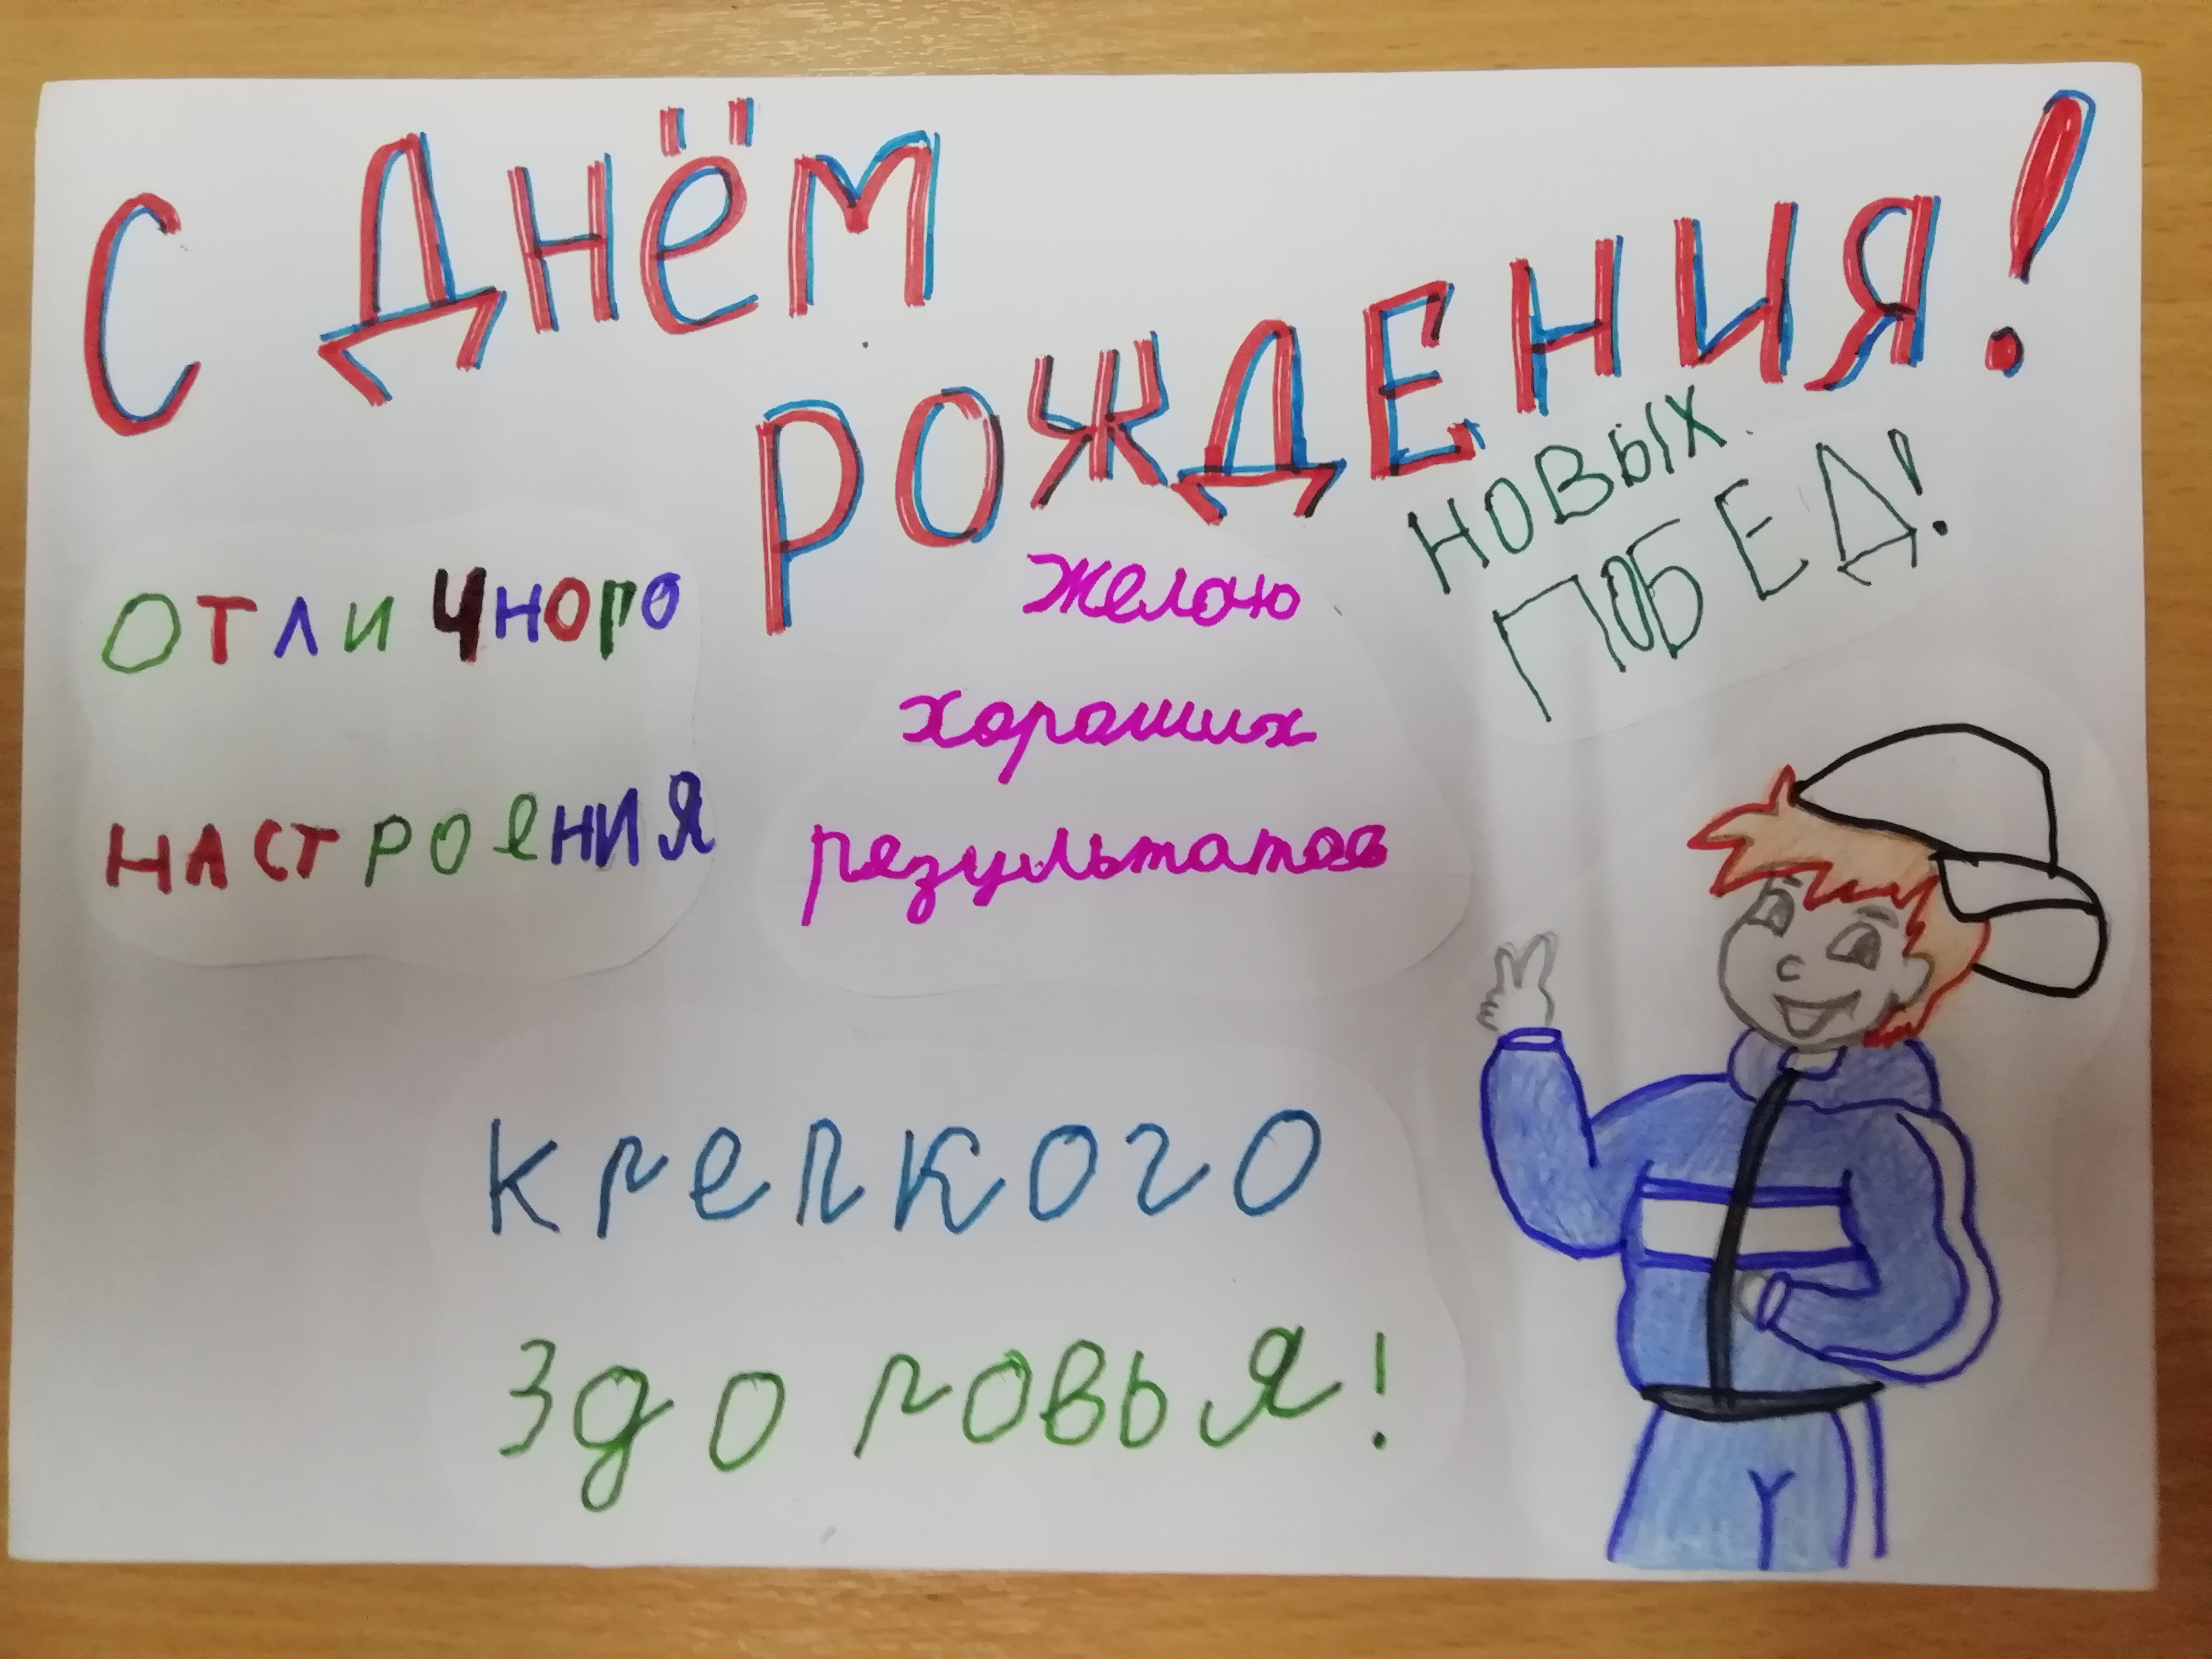 С ДНЁМ
РОЖДЕНИЯ!
НОВЫХ
ПОБЕД!
ОТЛИЧНОГО
НАСТРОЕНИЯ
Желаю
хороших
результатов
крепкого
здоровья!